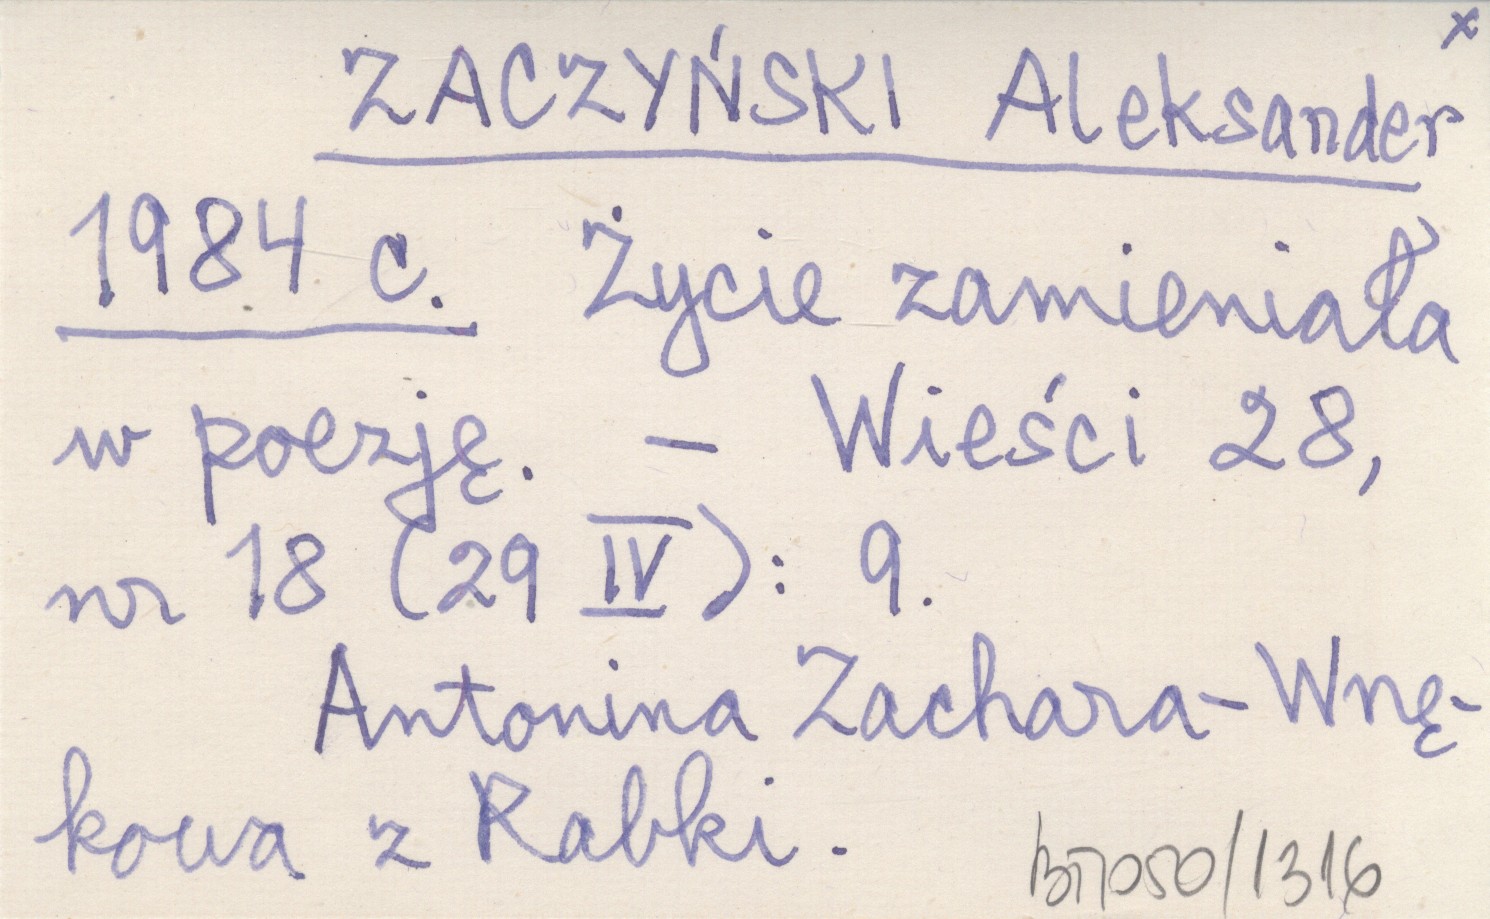 x
ZACZYŃSKI Aleksander
1984 c. Życie zamieniała
w poezję. — Wieści 28,
nr 18 (29 IV): 9.
Antonina Zachara-Wnę-
kowa z Rabki.
/1316